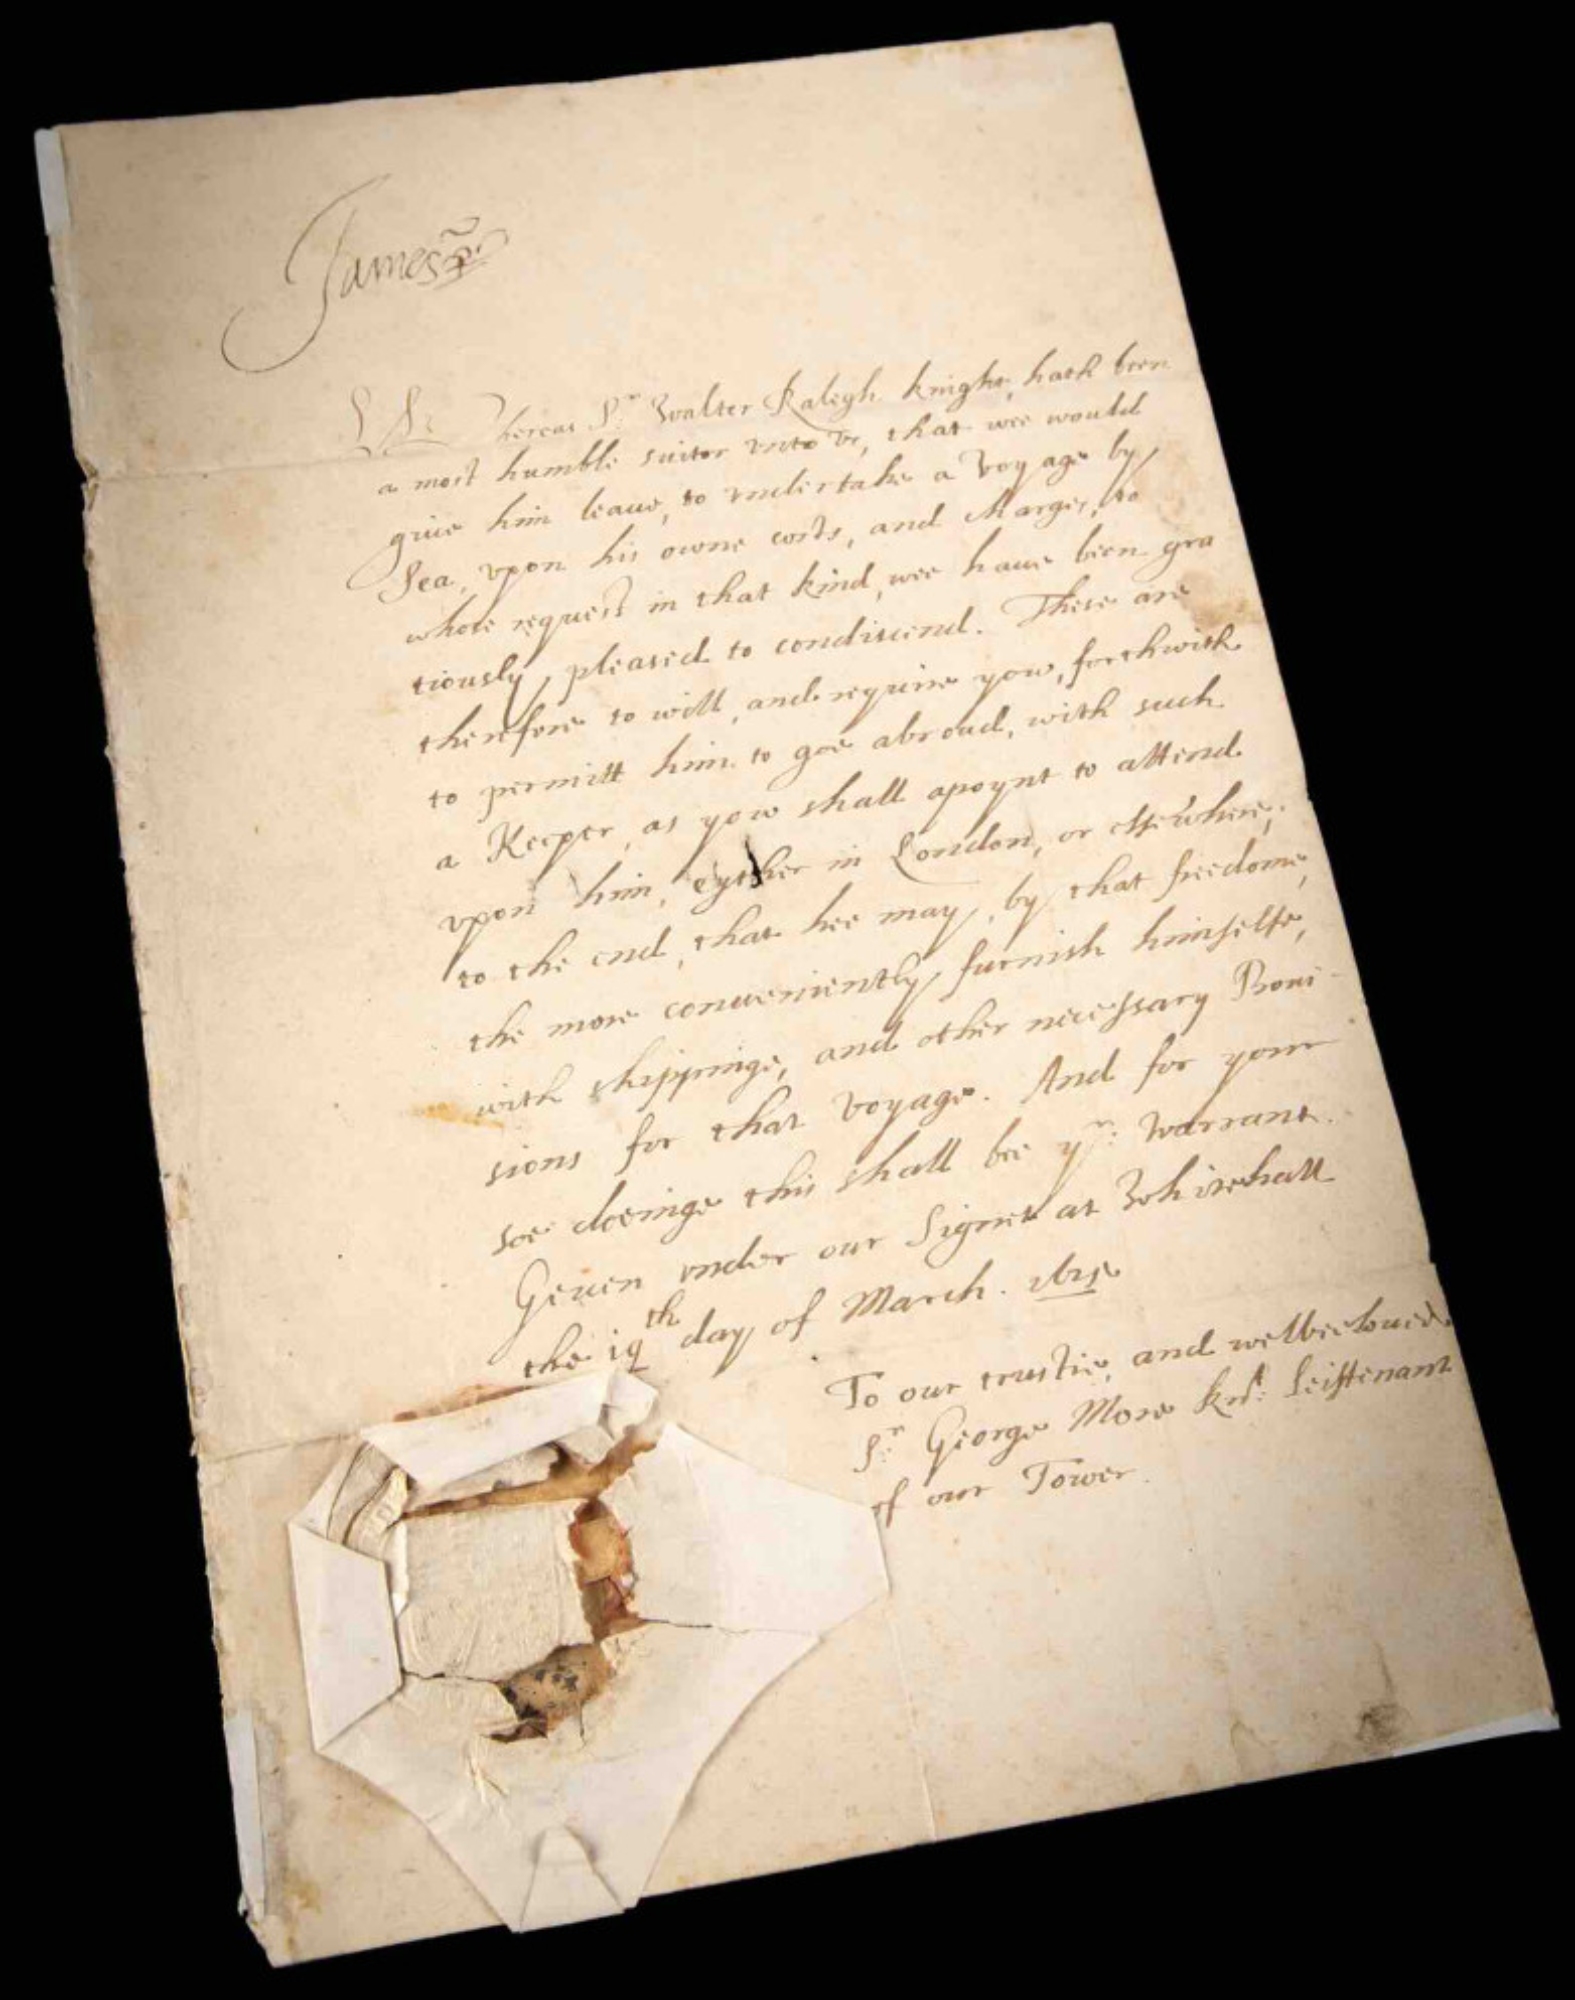 James R
Whereas Sr: Walter Ralegh knight, hath been
a most humble suitor vnto vs, that wee would
giue him leaue, to vndertake a Voyage by
Sea, vpon his owne costs, and Charges, to
whose request in that kind, wee haue been gra
tiously pleased to condiscend. These are
therefore to will, and require yow, forthwith
to permitt him to goe abroad, with such
a Keeper, as yow shall apoynt to attend
vpon him, eyther in London, or elsewhere,
to the end, that hee may, by that freedome,
the more conueniently furnish himselfe,
with shippinge, and other necessary Proui-
sions for that Voyage. And for your
soe doeinge this shall bee yr: Warrant.
Geuen vnder our Signet at Whitehall
the 19th day of March. 1615
To our trustie, and welbeeloued
Sr: George More Knt: Leiftenant
of our Tower.